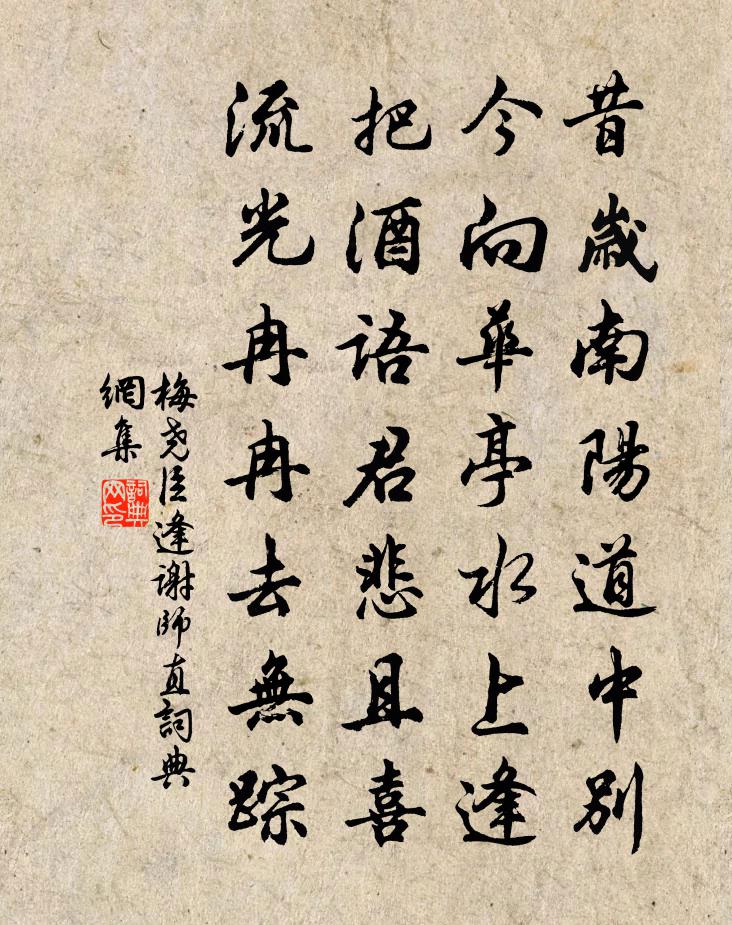 昔歲南陽道中別
今向華亭水上逢
把酒語君悲且喜
流光冉冉去無踪
梅堯臣逢謝師直詞典
網集
詞典
网印